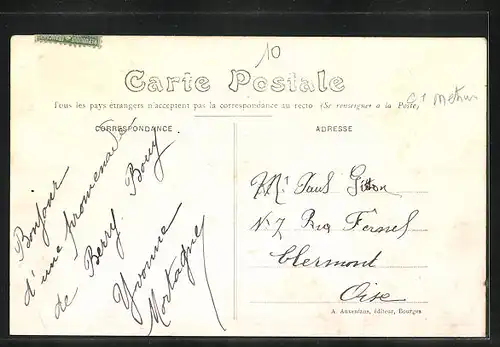 10
Carte Postale
Tous les pays étrangers n'acceptent pas la correspondance au recto (Se renseigner à la Poste)
CORRESPONDANCE
Bonjour
d'une promenade
de Berry Bouy
Yvonne
Mortagne
ADRESSE
Mr Paul
N° 7 Rue Fernel
Clermont
Oise
A. Auxenfans, éditeur, Bourges